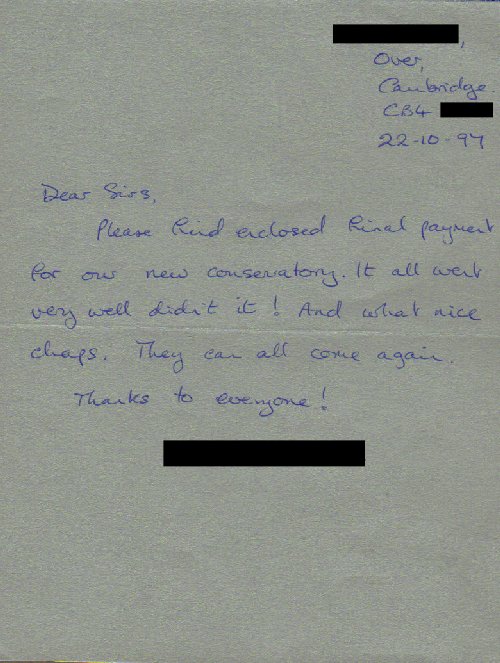 Over,
Cambridge.
CB4
22-10-97
Dear Sirs,
Please find enclosed final payment
for our new conservatory. It all went
very well didn't it! And what nice
chaps. They can all come again.
Thanks to everyone!